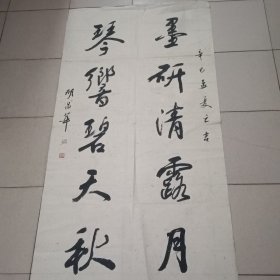 墨研清露月
琴響碧天秋
辛巳孟夏之吉